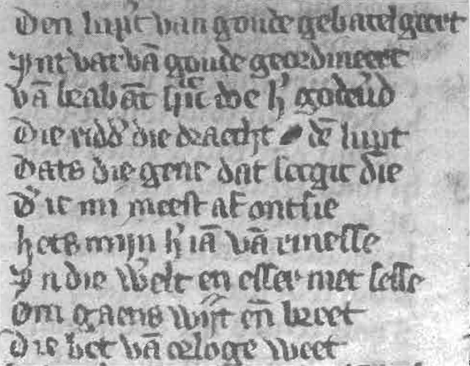 Den lup't van goude gebatelgiert
Jnt vat vā goude geordineert
vā brabāt hic doe h' godeu'd
Die ridd' die draecht dē lupt
Dats die gene dat seegic die
D' ic mi meest af ontsie
hets mijn h' iā vā rinesse
Jn die w'elt en esser niet sesse
Om gaens wijt eñ breet
Die bet vā orloge weet